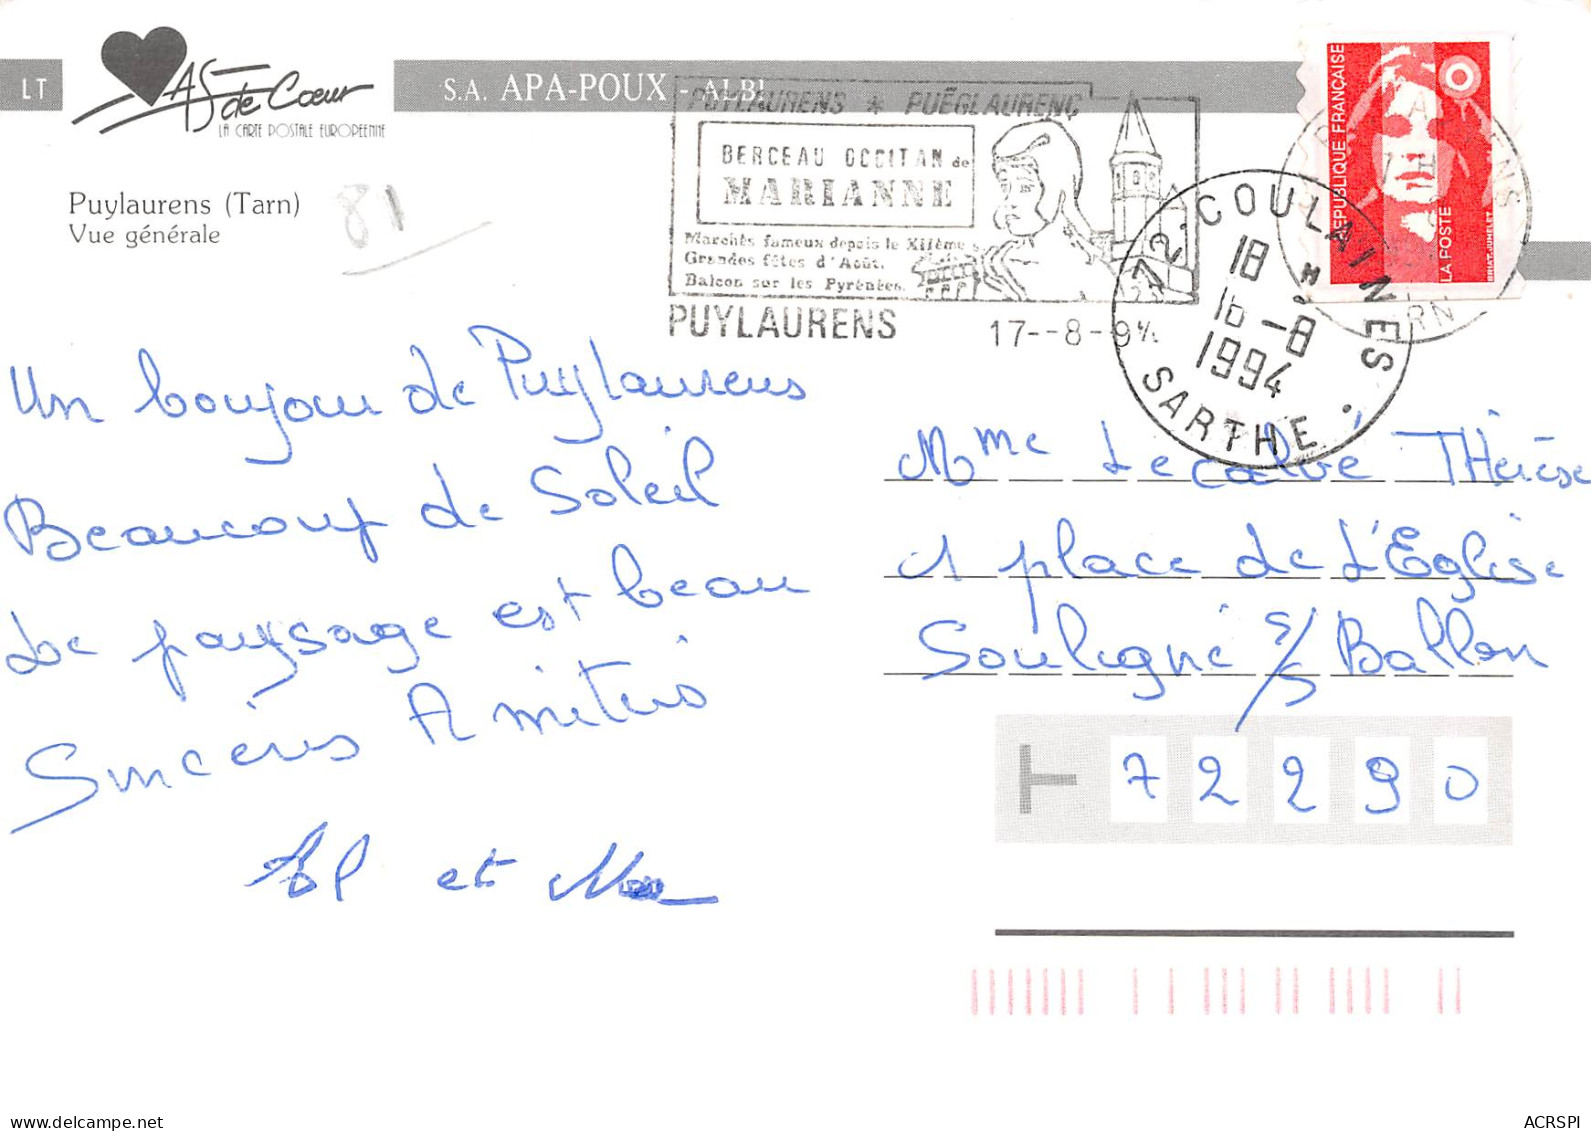 LT
AS de Cœur
LA CARTE POSTALE EUROPEENNE
S.A. APA-POUX - ALBI
Puylaurens (Tarn)
Vue générale
81
PUYLAURENS * PUËGLAURENÇ
BERCEAU OCCITAN de
MARIANNE
Marchés fameux depuis le XIIIème s.
Grandes fêtes d'Août.
Balcon sur les Pyrénées.
PUYLAURENS 17--8-9
72-COULAINES
18 H
16-8
1994
SARTHE
REPUBLIQUE FRANÇAISE
LA POSTE
Un bonjour de Puylaurens
Beaucoup de Soleil
Le paysage est beau
Sincères Amitiés
et
Mme Le calvé Thérèse
1 place de L'Eglise
Souligné s/s Ballon
72290
ACRSPI